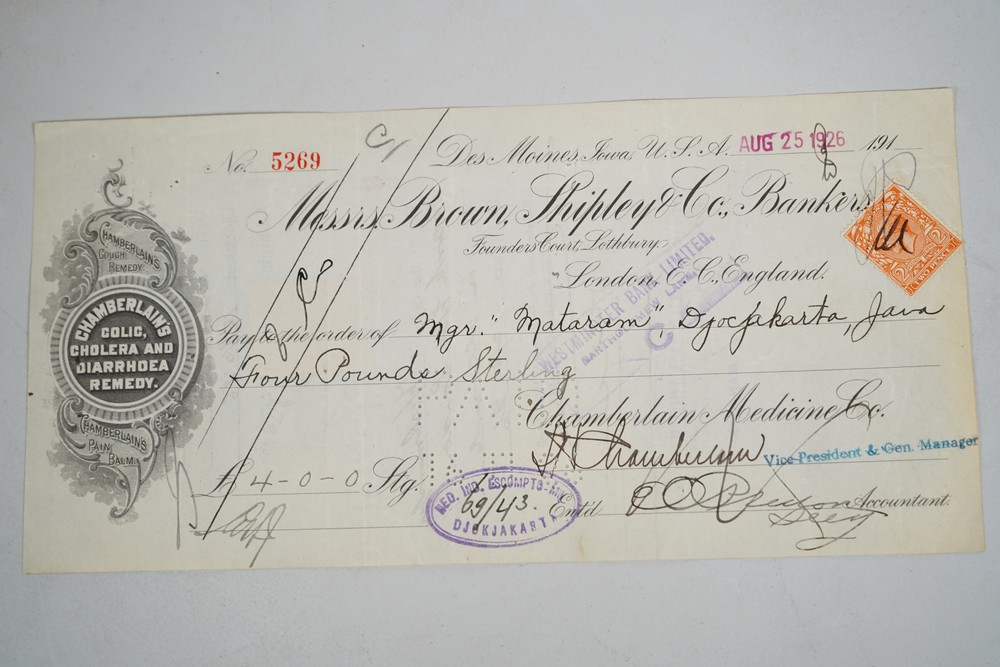 No. 5269
Des Moines, Iowa, U.S.A. AUG 25 1926 191
Messrs. Brown, Shipley & Co., Bankers,
Founders Court, Lothbury,
London, E.C., England.
Pay to the order of Mgr. "Mataram" Djocjakarta, Java
Four Pounds Sterling
Chamberlain Medicine Co.
Chamberlain Vice-President & Gen. Manager
£ 4-0-0 Stg.
Ent'd Accountant.
Secy
CHAMBERLAIN'S
COUGH
REMEDY.
CHAMBERLAIN'S
COLIC,
CHOLERA AND
DIARRHOEA
REMEDY.
CHAMBERLAIN'S
PAIN
BALM
WESTMINSTER BANK LIMITED.
NED. IND. ESCOMPTO-MIJ.
69/43.
DJOKJAKARTA
TWO PENCE